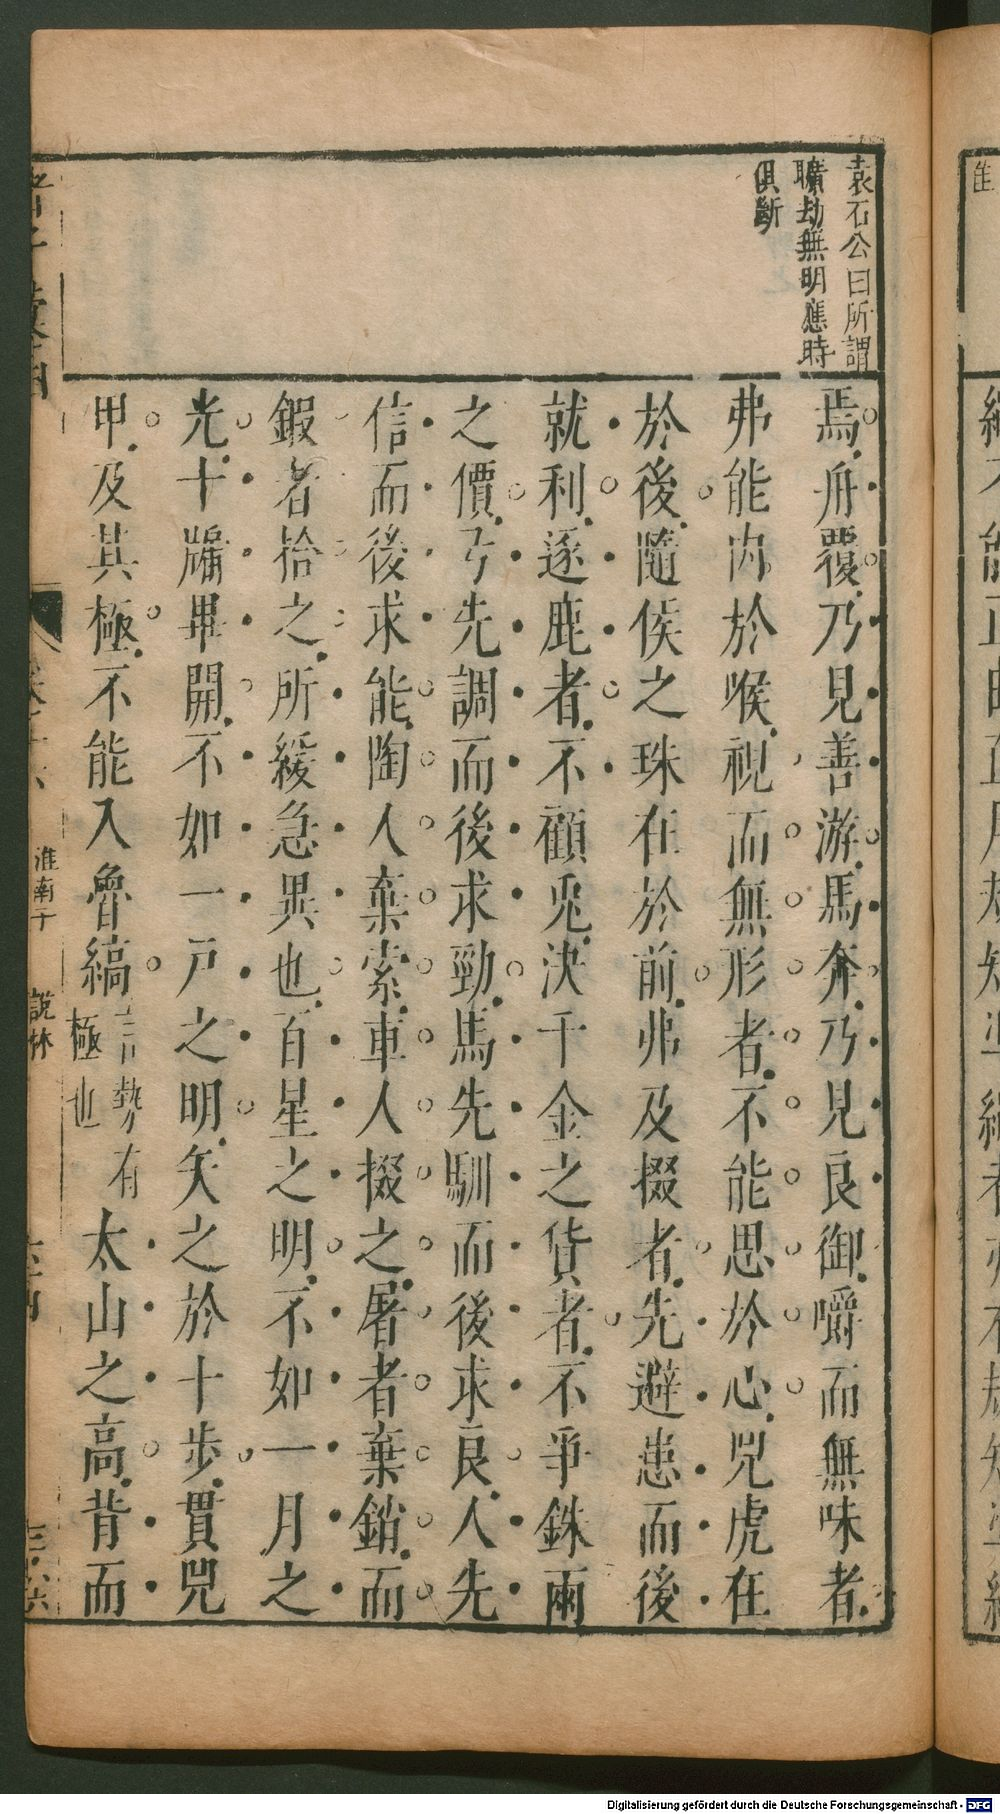 袁石公曰所謂
曠劫無明應時
俱斷
焉舟覆乃見善游馬奔乃見良御嚼而無味者
弗能内於喉視而無形者不能思於心兕虎在
於後隨侯之珠在於前弗及掇者先避患而後
就利逐鹿者不顧兎決千金之貨者不爭銖兩
之價弓先調而後求勁馬先馴而後求良人先
信而後求能陶人棄索車人掇之屠者棄銷而
鍜者拾之所緩急異也百星之明不如一月之
光十牖畢開不如一戸之明矢之於十步貫兕
甲及其極不能入魯縞言勢有極也太山之高背而
淮南子
說林
Digitalisierung gefördert durch die Deutsche Forschungsgemeinschaft - DFG